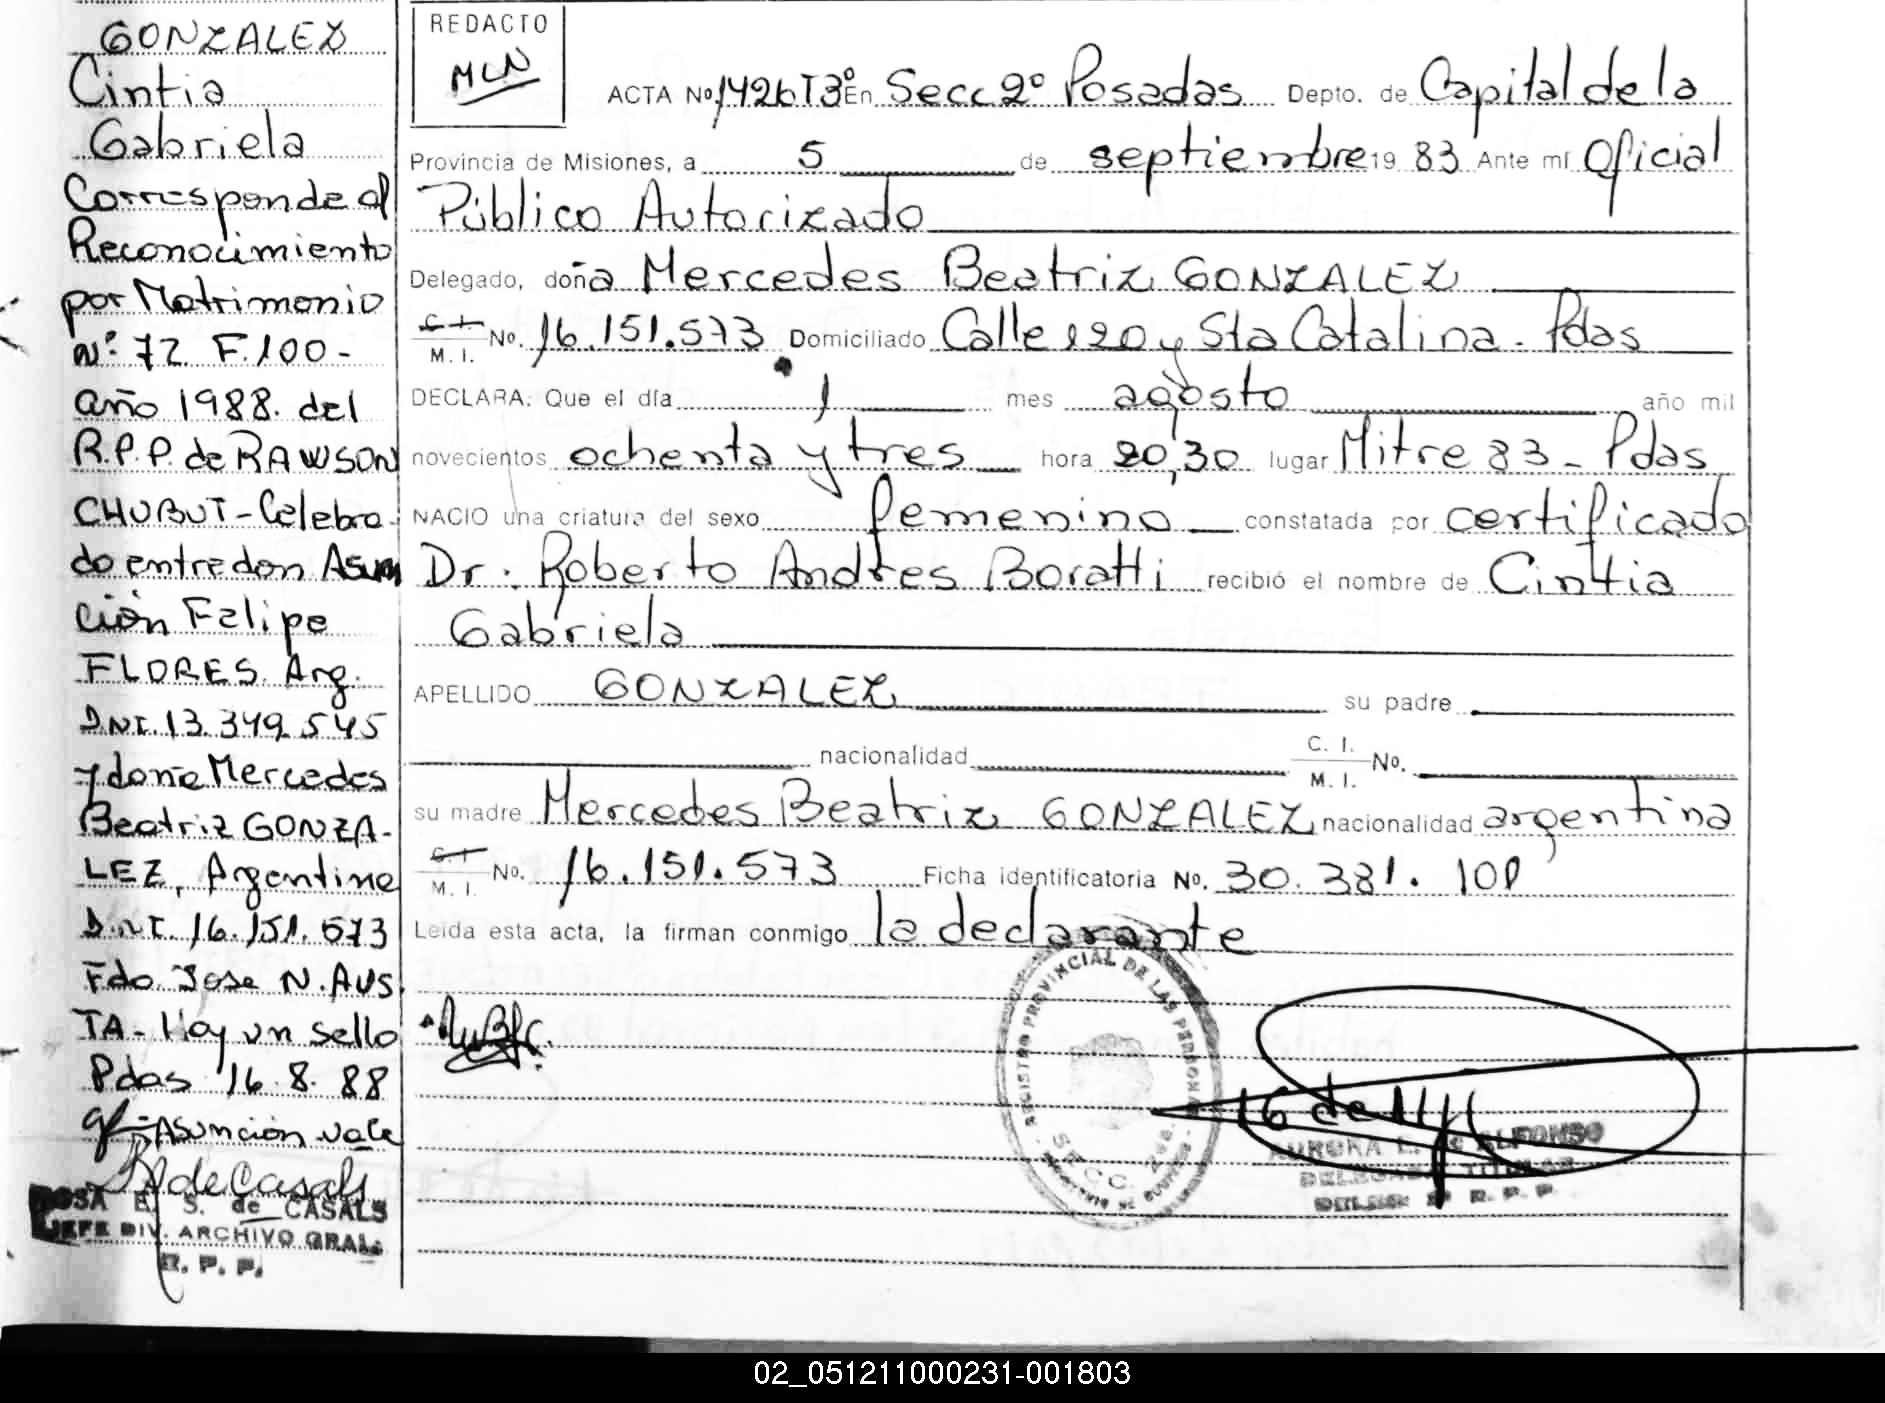 GONZALEZ
Cintia
Gabriela
Corresponde al
Reconocimiento
por Matrimonio
Nº 72 F.100-
año 1988. del
R.P.P. de RAWSON
CHUBUT-Celebra-
do entre don Asun
ción Felipe
FLORES. Arg.
D.N.I. 13.349.545
y doña Mercedes
Beatriz GONZA-
LEZ, Argentina
D.N.I. 16.151.573
Fdo Jose N. AUS
TA- Hay un sello
Pdas 16.8.88
Asunción vale
ROSA E. S. de CASALS
JEFE DIV. ARCHIVO GRAL.
R. P. P.
REDACTO
MLN
ACTA No 1426 T3º En Secc 2º Posadas Depto. de Capital de la
Provincia de Misiones, a 5 de septiembre 19 83 Ante mí Oficial
Público Autorizado
Delegado, doña Mercedes Beatriz GONZALEZ
C.I. M.I. No. 16.151.573 Domiciliado Calle 120 y Sta Catalina - Pdas
DECLARA: Que el día 1 mes agosto año mil
novecientos ochenta y tres hora 20,30 lugar Mitre 83 - Pdas
NACIO una criatura del sexo femenino constatada por certificado
Dr. Roberto Andres Boratti recibió el nombre de Cintia
Gabriela
APELLIDO GONZALEZ su padre
nacionalidad C. I. M. I. No.
su madre Mercedes Beatriz GONZALEZ nacionalidad argentina
C.I. M. I. No. 16.151.573 Ficha identificatoria No. 30.381.101
Leída esta acta, la firman conmigo la declarante
REGISTRO PROVINCIAL DE LAS PERSONAS
SECC. 2da.
ALFONSO
DELEGADA TITULAR
R. P. P.
02_051211000231-001803